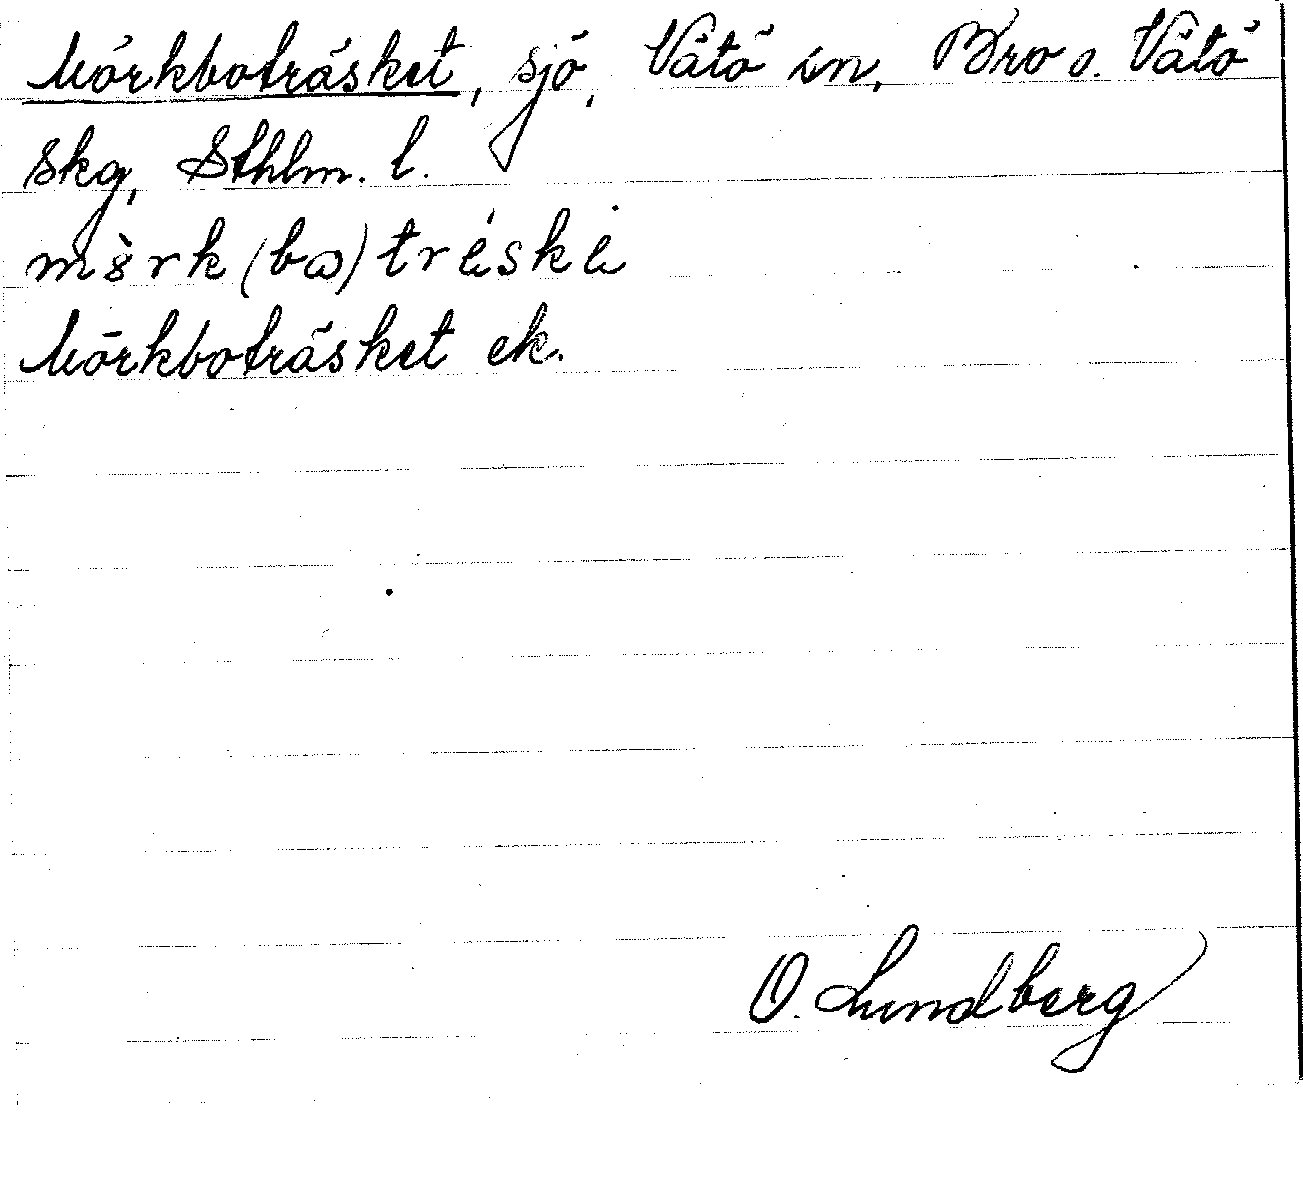 Mörkboträsket, sjö, Vätö sn, Bro o. Vätö
skg, Sthlm. l.
Mörkboträsket ek.
O. Lundberg